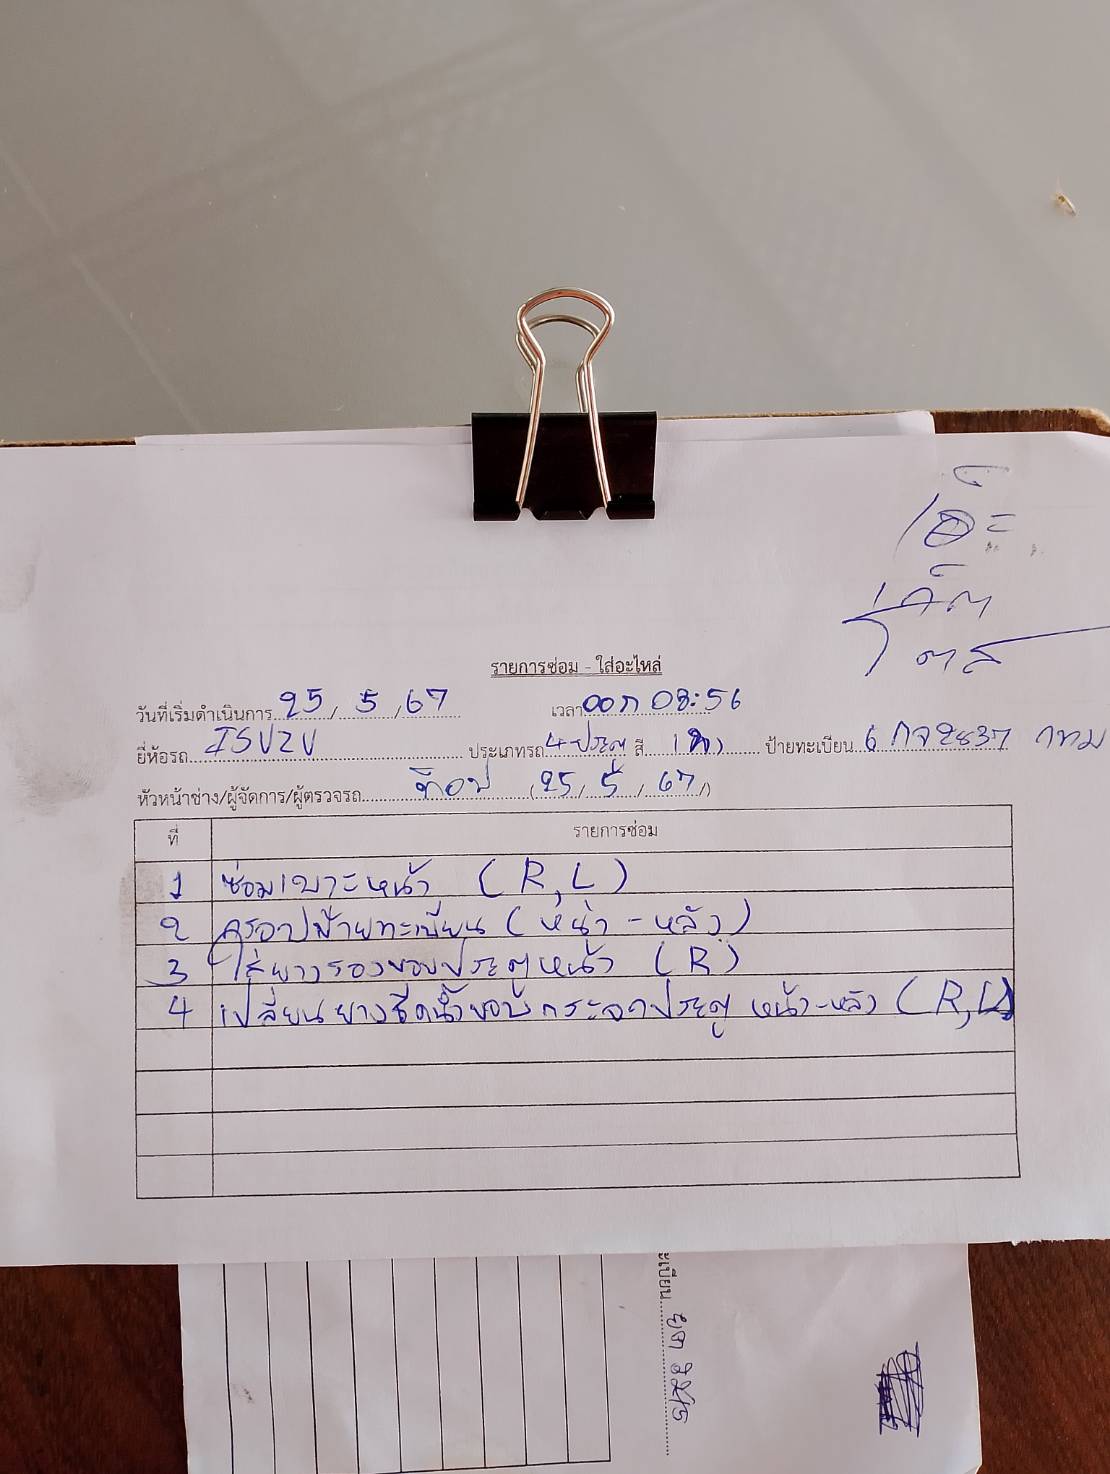 รายการซ่อม - ใส่อะไหล่
วันที่เริ่มดำเนินการ 25 / 5 / 67 เวลา ออก 08:56
ยี่ห้อรถ ISUZU ประเภทรถ 4 ประตู สี ป้ายทะเบียน 6 กจ 2837 กทม
หัวหน้าช่าง/ผู้จัดการ/ผู้ตรวจรถ ท็อป (25 / 5 / 67)
ที่ รายการซ่อม
1 ซ่อมเบาะหน้า (R,L)
2 ครอบป้ายทะเบียน (หน้า - หลัง)
3 ใส่ยางรองขอบประตูหน้า (R)
4 เปลี่ยนยางรีดน้ำขอบกระจกประตู หน้า-หลัง (R,L)
ะเบียน